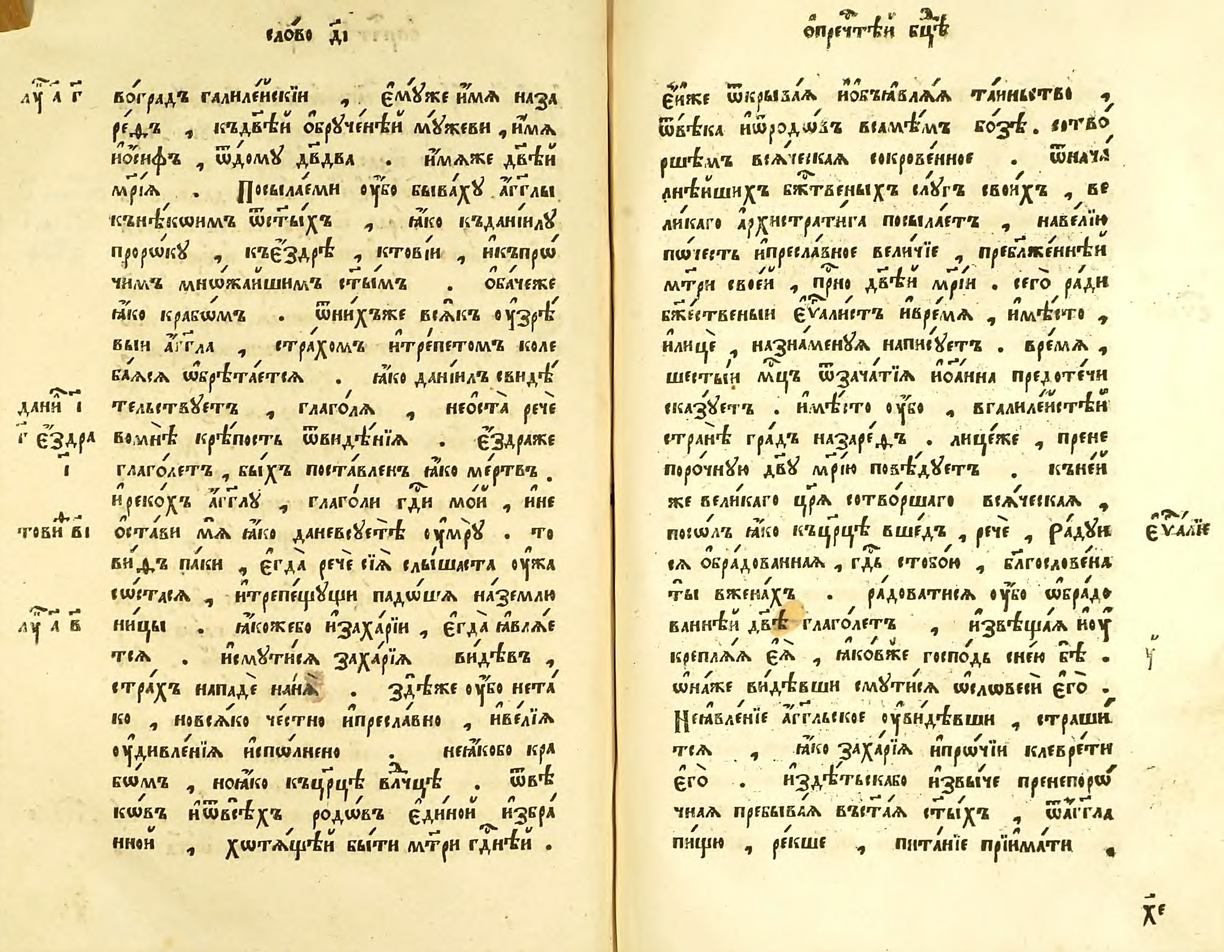 сло́во д҃і
лꙋ҄ а҃ г҃
во́градъ галиле́йскїи , є҆мꙋже и҆мѧ наза
ре́ѳъ , къдв҃ѣй ѻ҆брꙋче́нѣй мꙋ́жеви , и҆мѧ
ио҆́сифъ , ѿдомꙋ дв҃два . и҆мѧже дв҃ѣй
мр҃їѧ . Посыла́еми ᲂу҆бо быва́хꙋ а҆́гг҃лы
кънѣ́кѡимъ ѿст҃ыхъ , ꙗ҆ко къданїи́лꙋ
проро́кꙋ , къє҆́здрѣ , ктові́и , и҆къпрѡ́
чимъ мнѡ́жайшимъ ст҃ымъ . ѻ҆ба́чеже
ꙗ҆ко рабѡ́мъ . ѿни́хъже всѧ́къ ᲂу҆зрѣ́
выи а҆́гг҃ла , стра́хомъ и҆тре́петомъ коле
ба́ѧсѧ ѡ҆брѣта́етсѧ . ꙗ҆ко данїи́лъ свидѣ́
дани҄ і҃
тельствꙋетъ , глаго́лѧ , неѻ҆ста̀ речѐ
г҃ є҆́здра
вомнѣ̀ крѣ́пость ѿвидѣ́нїѧ . є҆́здраже
і҃
глаго́летъ , бы́хъ поста́вленъ ꙗ҆ко ме́ртвъ .
и҆реко́хъ а҆́гг҃лꙋ , глаго́ли гд҃и мо́й , и҆не
тови҄ в҃і
ѻ҆ста́ви мѧ̀ ꙗ҆ко даневсꙋ́етѣ ᲂу҆мрꙋ̀ . то
ви́ѳъ па́ки , є҆гда̀ речѐ сїѧ̀ слы́шаста ᲂу҆жа
со́стасѧ , и҆трепе́щꙋщи падо́шѧ на́землю
лꙋ҄ а҃ в҃
ни́цы . ꙗ҆́коже́бо и҆заха́рїи , є҆гда̀ ꙗ҆влѧ́е
тсѧ . и҆смꙋти́сѧ заха́рїѧ ви́дѣвъ ,
стра́хъ нападѐ на́нь . здѣ́же ᲂу҆́бо нета́
ко , новсѧ́ко че́стно и҆пресла́вно , и҆ве́лїѧ
ᲂу҆дивле́нїѧ и҆спо́лнено . неꙗ҆́кобо кра
бѡ́мъ , ноꙗ҆́ко къцр҃цѣ влⷣчцѣ . ѿвѣ́
кѡвъ и҆ѿвсѣ́хъ родѡ́въ є҆ди́ной и҆збра́
нной , хотѧ́щѣй бы́ти мт҃ри гдⷭ҇нѣй .
ѻ҆пречⷭ҇тѣй бц҃ѣ
є҆́йже ѿкрыва́ѧ и҆ѻ҆бъꙗ҆влѧ́ѧ та́иньство ,
ѿвѣ́ка и҆ѿродѡ́въ всамѣ́мъ бо́зѣ . сотво́
ршемъ всѧ́ческаѧ сокрове́нное . ѿнача́
лнѣйшихъ бжⷭ҇твеныхъ слꙋ́гъ свои́хъ , ве
ли́каго а҆рхистрати́га посыла́етъ , наве́лїю
по́честь и҆пресла́вное вели́чїе , пребл҃же́ннѣй
мт҃ри свое́й , прⷭ҇но дв҃ѣй мр҃і́и . сегѡ̀ ра́ди
бж҃е́ственыи є҆ѵⷢ҇али́стъ и҆вре́мѧ , и҆мѣ́сто ,
и҆ли́це , назна́менꙋѧ напи́сꙋетъ . вре́мѧ ,
шесты́и мц҃ъ ѿзача́тїѧ и҆ѻ҆а́нна предоте́чи
сказꙋ́етъ . и҆мѣ́сто ᲂу҆́бо , вгалиле́йстѣй
странѣ̀ гра́дъ назаре́ѳъ . лице́же , прене
поро́чнꙋю дв҃ꙋ мр҃і́ю повѣ́дꙋетъ . къне́й
же вели́каго цр҃ѧ̀ сотво́ршаго всѧ́ческаѧ ,
є҆ѵⷢ҇а́лїе
посо́лъ ꙗ҆́ко къцр҃цѣ вше́дъ , речѐ , Ра́дꙋи
сѧ ѻ҆бра́дованнаѧ , гдⷭ҇ь стобо́ю , благослове́на
ты̀ вжена́хъ . ра́доватисѧ ᲂу҆́бо ѡ҆бра́до
ваннѣй дв҃ѣ глаго́летъ , и҆звѣща́ѧ и҆ᲂу҆
креплѧ́ѧ є҆ѧ̀ , ꙗ҆́ковже госпо́дь сне́ю бѣ̀ .
ѻ҆на́же ви́дѣвши смꙋти́сѧ ѡ҆словесѝ є҆гѡ̀ .
Неꙗ҆вле́нїе а҆́гг҃льское ᲂу҆ви́дѣвши , страши́
тсѧ , ꙗ҆́ко заха́рїѧ и҆про́чїи клевре́ти
є҆гѡ̀ . и҆здѣ́тьскабо и҆звы́че пренепоро́
чнаѧ пребыва́ѧ въст҃а́ѧ ст҃ы́хъ , ѿа҆́гг҃ла
пи́щꙋ , ре́кше , пита́нїе прїима́ти .
х҃е